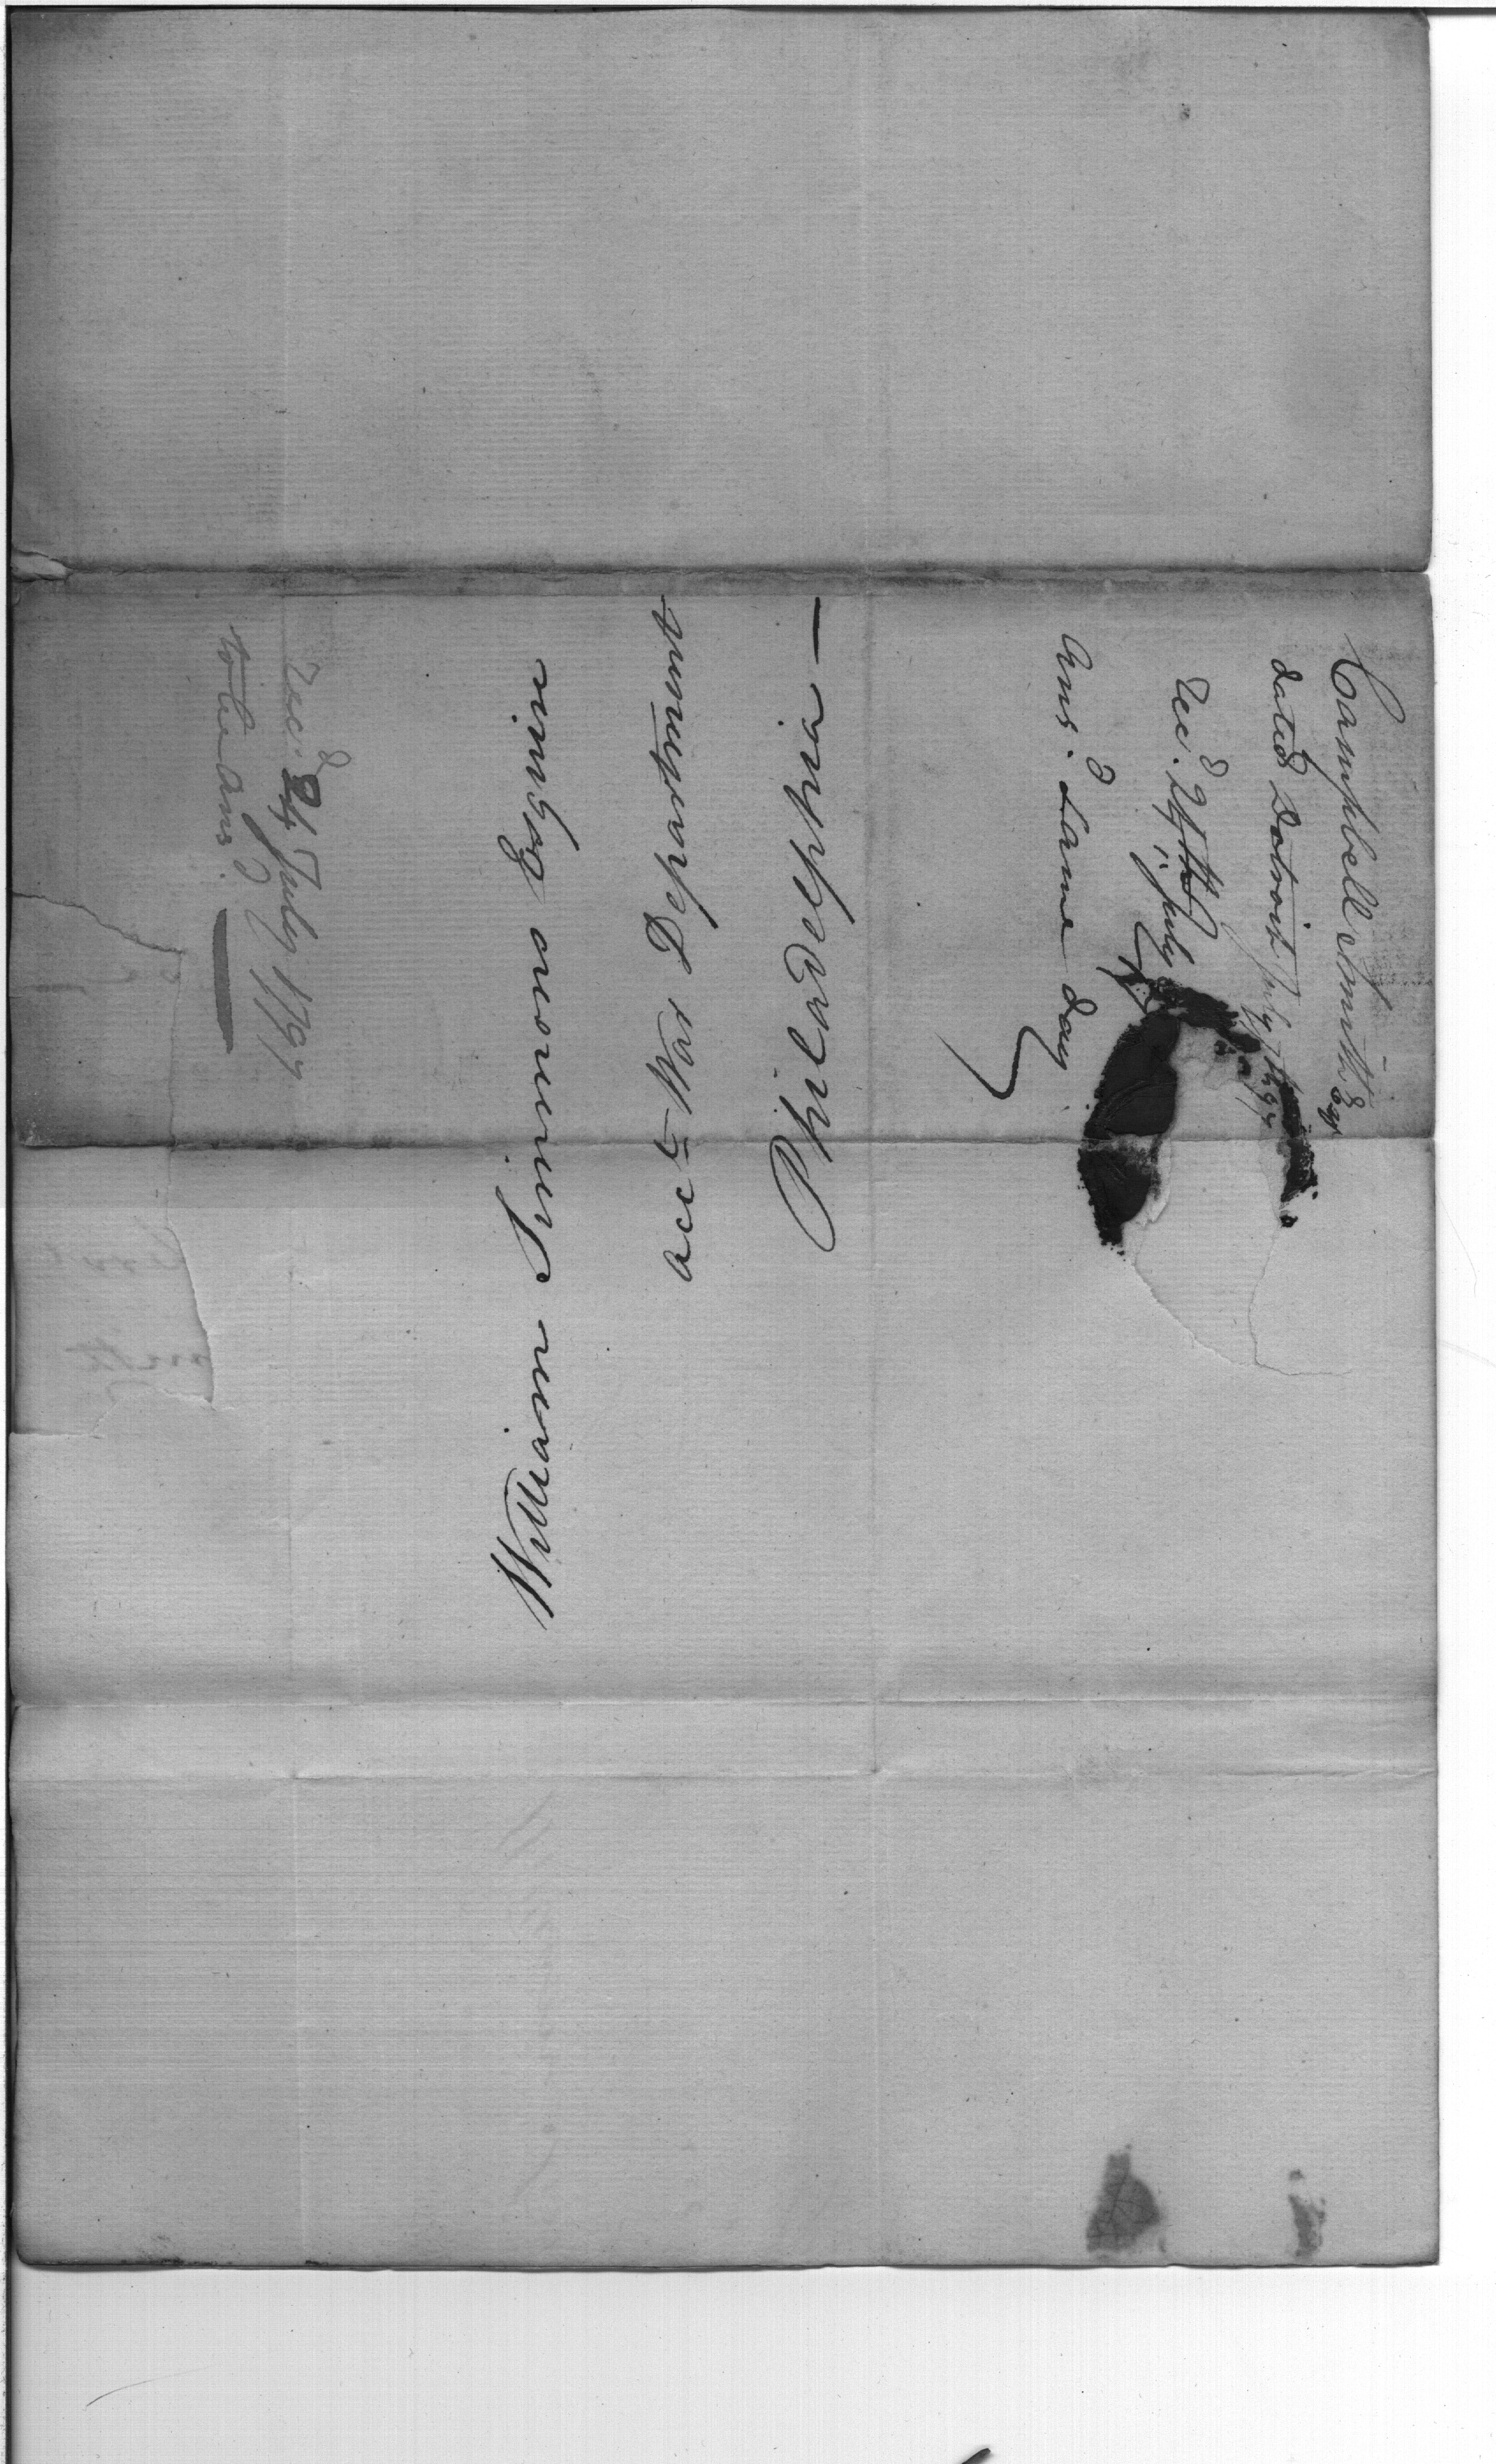 Campbell Smith Esqr
dated Detroit July 1797
Recd. 24th July
Ansd. Same day
William Simmons Esquire
acct War Department
Philadelphia —
Recd. 24 July 1797
to be Ansd.